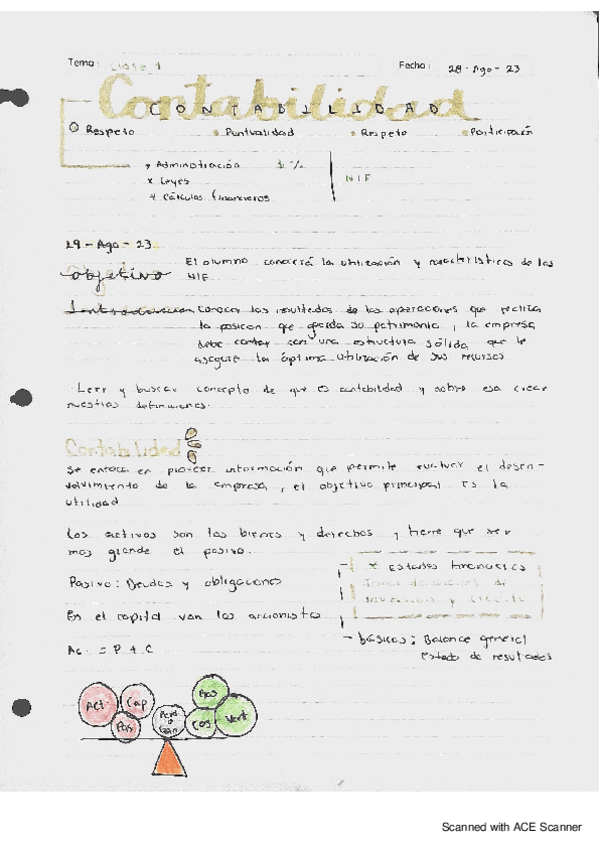 Tema: Clase 1 Fecha: 28-Ago-23
Contabilidad
CONTABILIDAD
Respeto Puntualidad Respeto Participación
Administración $ %
Leyes NIF
Cálculos financieros
29-Ago-23
objetivo El alumno conocerá la utilización y características de las
NIF
Conocer los resultados de las operaciones que realiza
la posicion que guarda su patrimonio, la empresa
debe contar con una estructura sólida que le
asegure la óptima utilización de sus recursos
Leer y buscar concepto de que es contabilidad y sobre esa crear
nuestras definiciones.
Contabilidad
Se enfoca en proveer información que permite evaluar el desen-
volvimiento de la empresa, el objetivo principal es la
utilidad
Los activos son los bienes y derechos y tiene que ser
mas grande el pasivo.
* Estados financieros
Toma de decisiones de
inversión y crédito
Pasivo: Deudas y obligaciones
En el capital van los accionistas
- básicos: Balance general
Estado de resultados
Ac = P + C
Act Cap Pas Perd o Gan Gas Cos Vent
Scanned with ACE Scanner